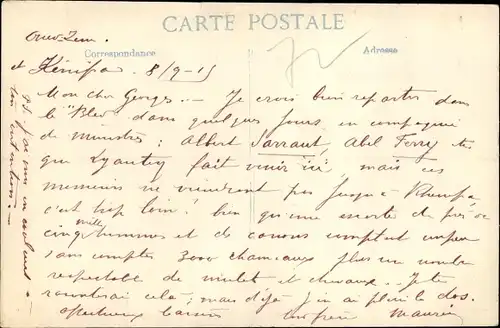 CARTE POSTALE
Correspondance
Adresse
Oued-Zem
et Kénifra 8/9-15
Mon cher Georges.- Je crois bien repartir dans
le "Bled" dans quelques jours en compagnie
de ministres: Albert Sarraut, Abel Ferry etc
que Lyautey fait venir ici, mais ces
messieurs ne viendront pas jusqu'à Khenifra
c'est trop loin! bien qu'une escorte de près de
cinq mille hommes et des canons
sans compter 3000 chameaux plus un nombre
respectable de mulets et chevaux. Je te
raconterai cela; mais déjà j'en ai plein le dos.
Affectueux baisers ton frère Maurice